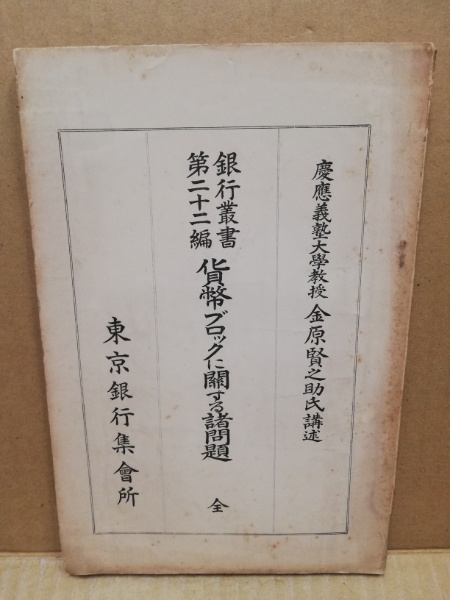 慶應義塾大學教授 金原賢之助氏講述
銀行叢書
第二十二編
貨幣ブロックに關する諸問題 全
東京銀行集會所